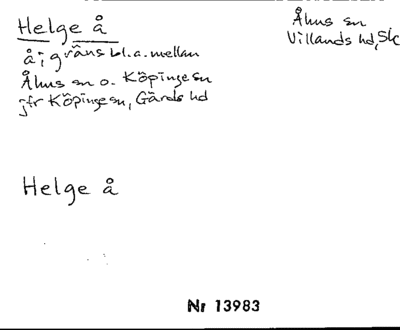 Helge å
å; gräns bl.a. mellan
Åhus sn o. Köpinge sn
jfr Köpinge sn, Gärds hd
Åhus sn
Villands hd, Sk
Helge å
Nr 13983